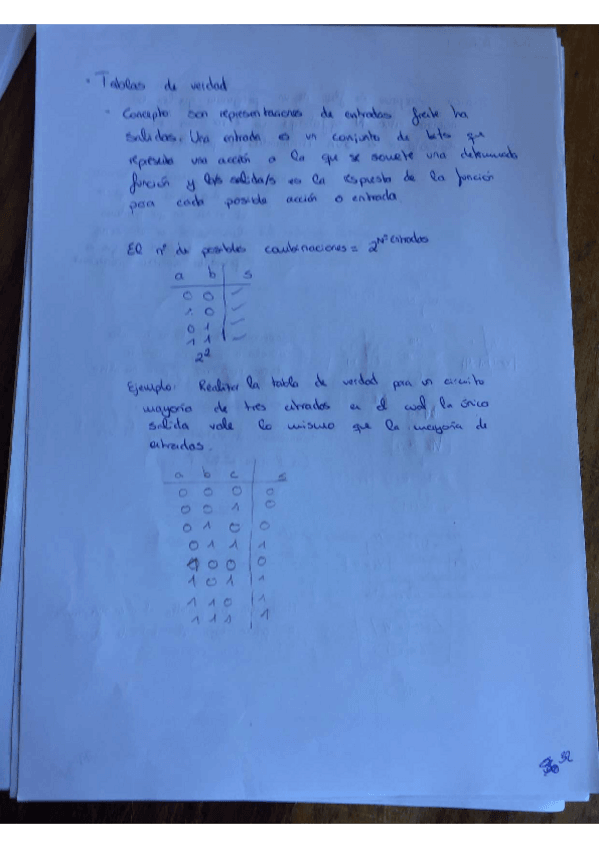 · Tablas de verdad
· Concepto son representaciones de entradas frente ha
salidas. Una entrada es un conjunto de bits que
representa una acción a la que se somete una determinada
función y la/s salida/s es la respuesta de la función
para cada posible acción o entrada
El nº de posibles combinaciones = 2^Nº entradas
a b s
0 0 –
1 0 –
0 1 –
1 1 –
2^2
Ejemplo: Realizar la tabla de verdad para un circuito
mayoría de tres entradas en el cual, la única
salida vale lo mismo que la mayoría de
entradas.
a b c s
0 0 0 0
0 0 1 0
0 1 0 0
0 1 1 1
1 0 0 0
1 0 1 1
1 1 0 1
1 1 1 1
52